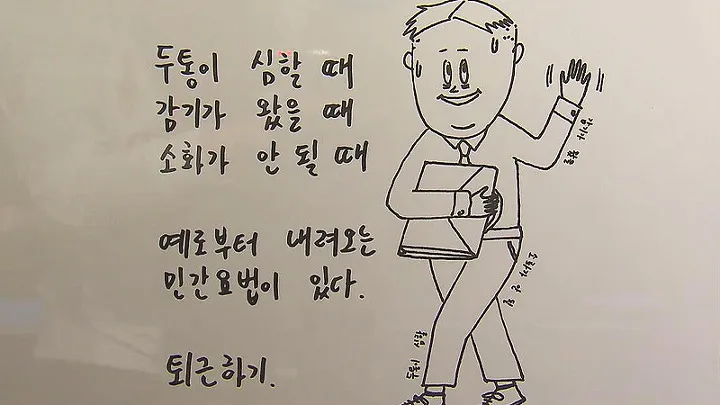 두통이 심할 때
감기가 왔을 때
소화가 안 될 때
예로부터 내려오는
민간요법이 있다.
퇴근하기.
두통이 심할